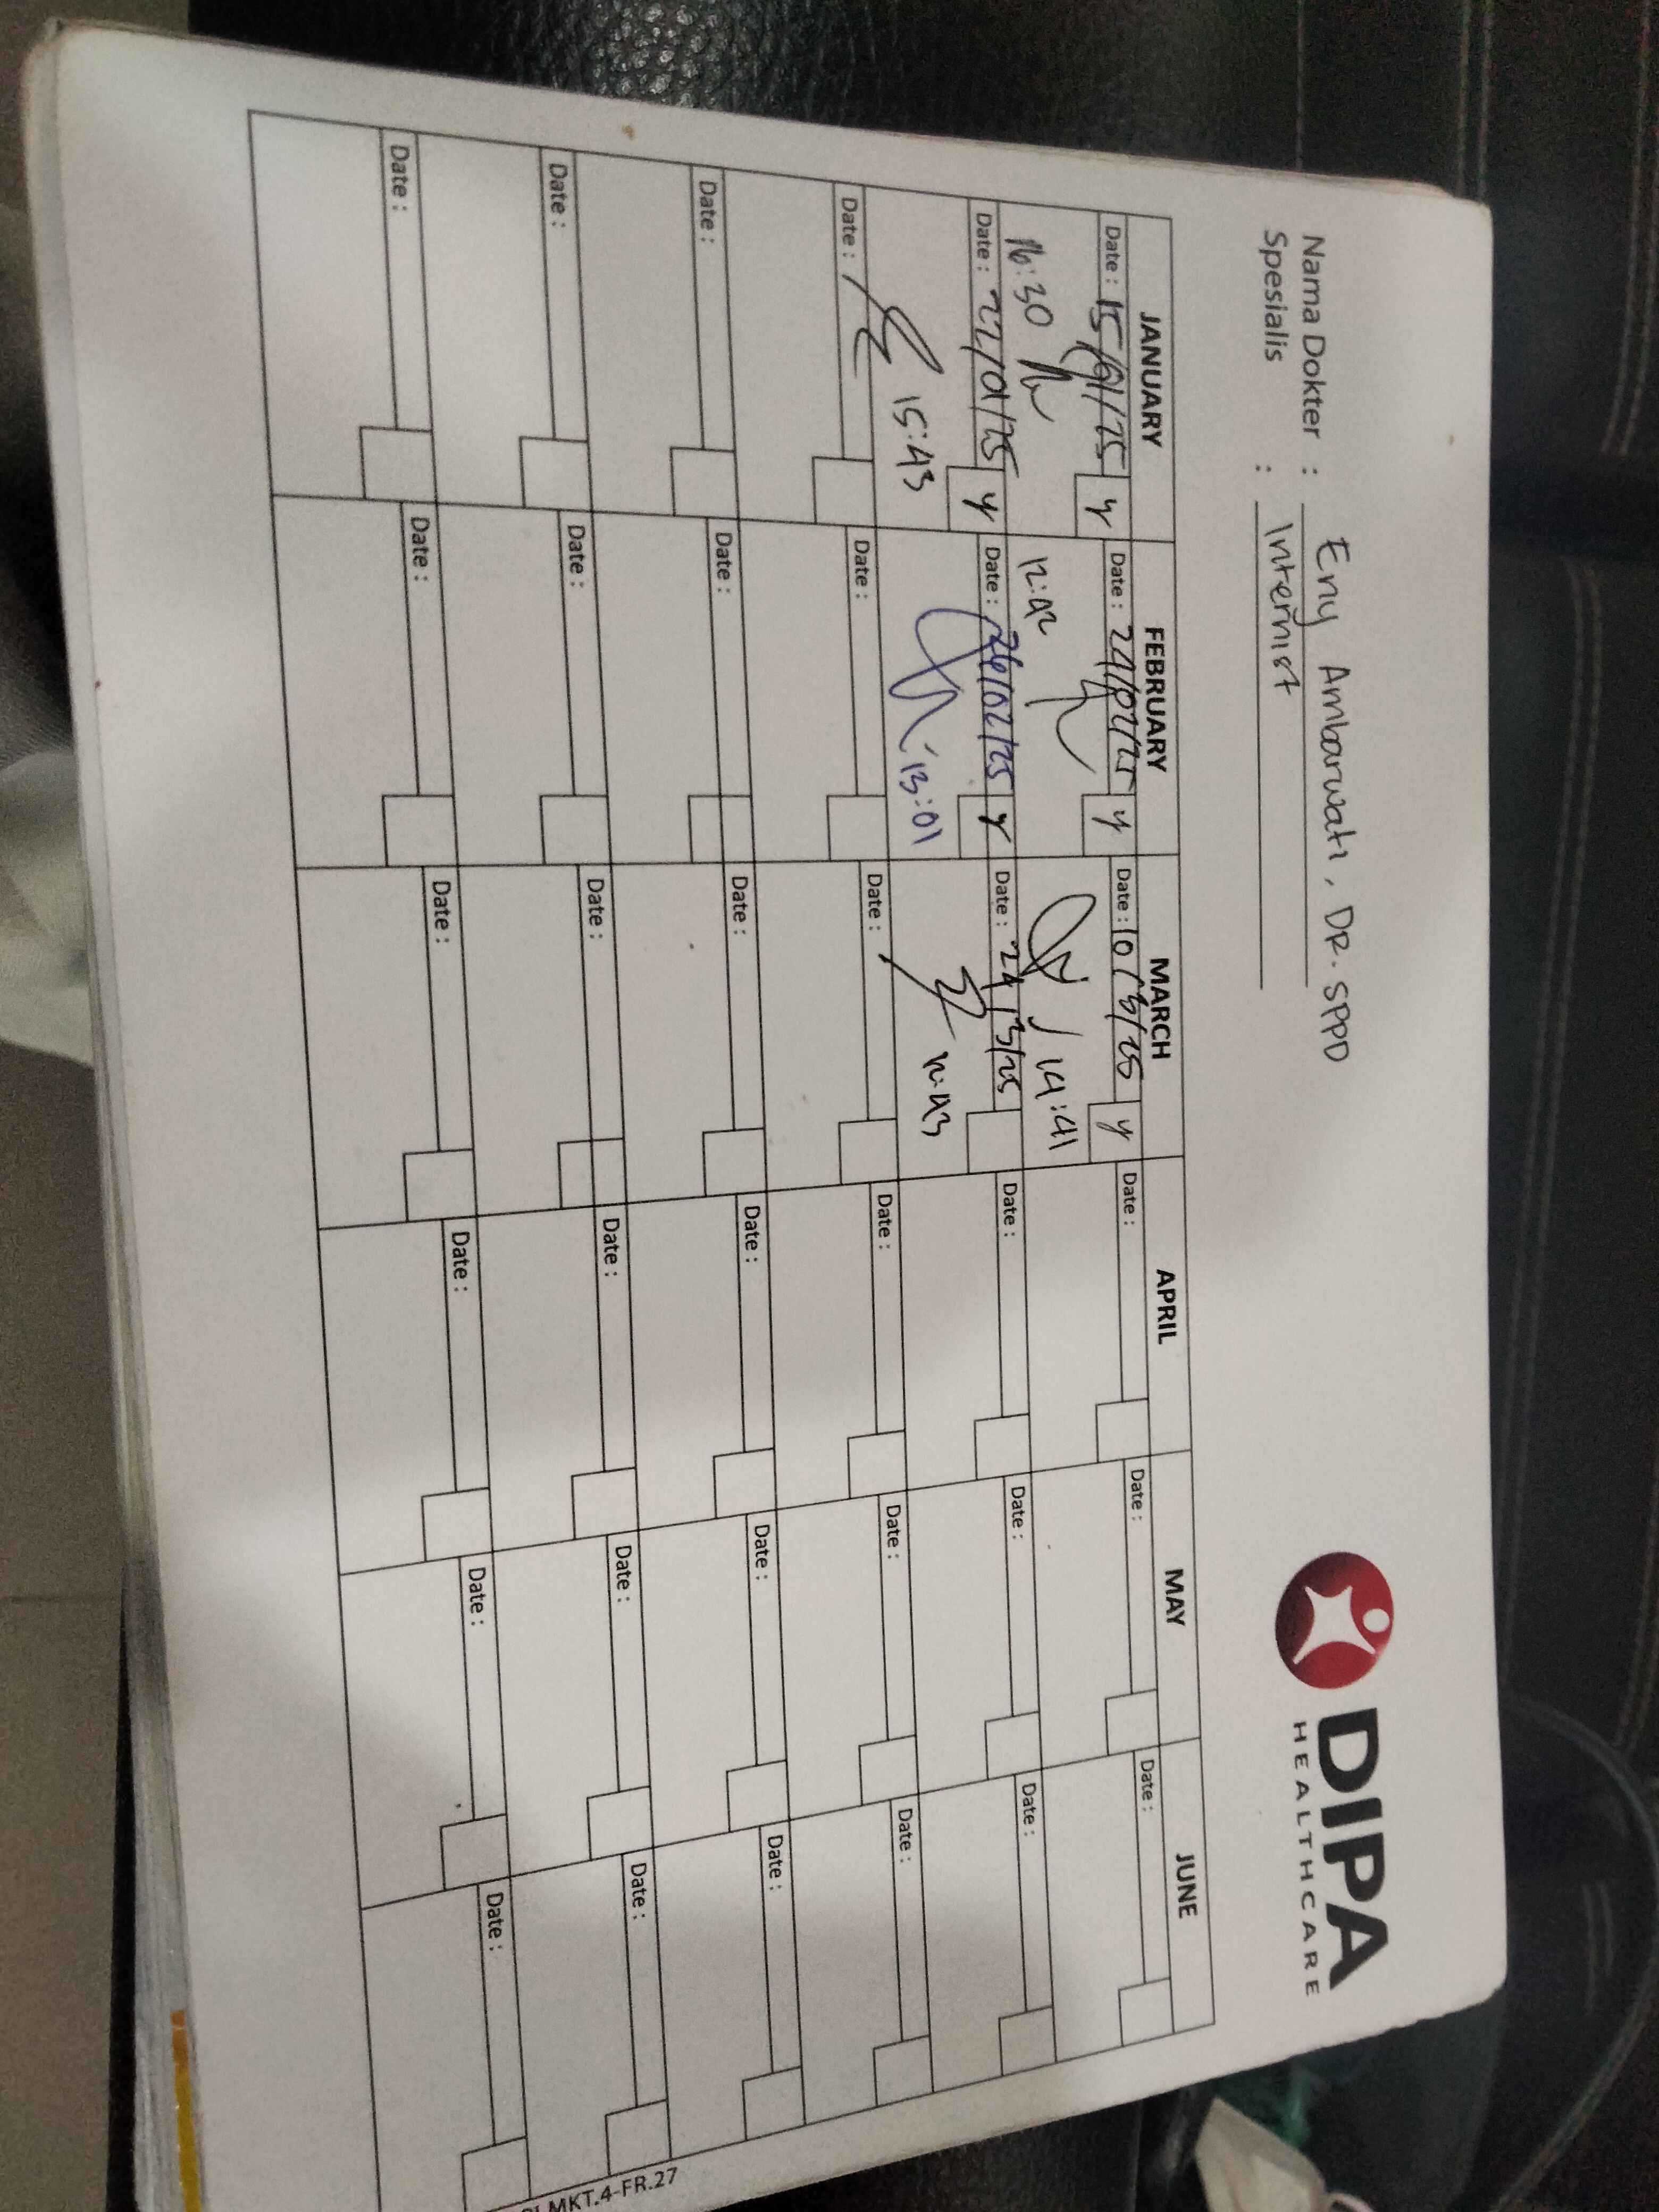 Nama Dokter : Eny Ambarwati, DR. SPPD
Spesialis : Internist
DIPA
HEALTHCARE
JANUARY FEBRUARY MARCH APRIL MAY JUNE
Date : 15/01/25 y Date : 24/02/25 y Date : 10/3/25 y Date : Date : Date :
16:30 12:42 14:41
Date : 22/01/25 y Date : 26/02/25 y Date : 24/3/25 Date : Date : Date :
15:43 13:01 12:43
Date : Date : Date : Date : Date : Date :
Date : Date : Date : Date : Date : Date :
Date : Date : Date : Date : Date : Date :
Date : Date : Date : Date : Date : Date :
MKT.4-FR.27